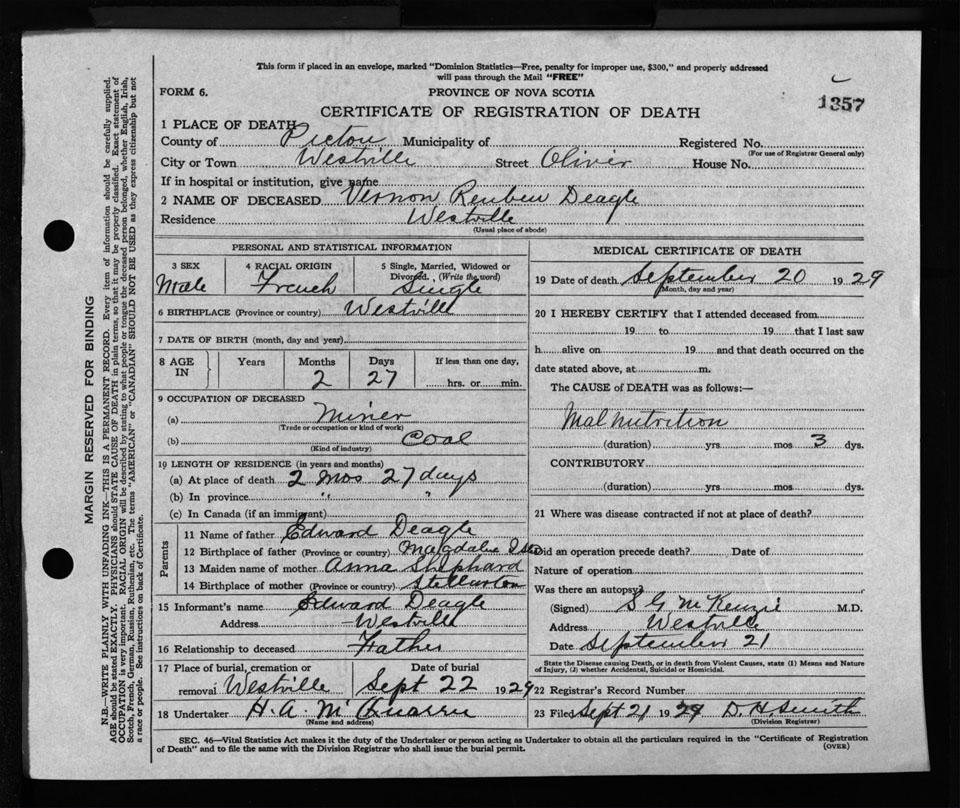 This form if placed in an envelope, marked "Dominion Statistics—Free, penalty for improper use, $300," and properly addressed
will pass through the Mail "FREE"
FORM 6. PROVINCE OF NOVA SCOTIA 1357
CERTIFICATE OF REGISTRATION OF DEATH
1 PLACE OF DEATH
County of Pictou Municipality of Registered No.
(For use of Registrar General only)
City or Town Westville Street Oliver House No.
If in hospital or institution, give name
2 NAME OF DECEASED Vernon Reuben Deagle
Residence Westville
(Usual place of abode)
PERSONAL AND STATISTICAL INFORMATION
3 SEX 4 RACIAL ORIGIN 5 Single, Married, Widowed or
Divorced. (Write the word)
Male French Single
6 BIRTHPLACE (Province or country) Westville
7 DATE OF BIRTH (month, day and year)
8 AGE IN Years Months Days If less than one day,
2 27 hrs. or min.
9 OCCUPATION OF DECEASED
(a) Miner
(Trade or occupation or kind of work)
(b) Coal
(Kind of industry)
10 LENGTH OF RESIDENCE (in years and months)
(a) At place of death 2 mos 27 days
(b) In province " "
(c) In Canada (if an immigrant)
Parents
11 Name of father Edward Deagle
12 Birthplace of father (Province or country) Magdalene Isds
13 Maiden name of mother Anna Shephard
14 Birthplace of mother (Province or country) Stellarton
15 Informant's name Edward Deagle
Address Westville
16 Relationship to deceased Father
17 Place of burial, cremation or Date of burial
removal Westville Sept 22 1929
18 Undertaker H. A. Mc
(Name and address)
MEDICAL CERTIFICATE OF DEATH
19 Date of death September 20 1929
(Month, day and year)
20 I HEREBY CERTIFY that I attended deceased from
19 to 19 that I last saw
h alive on 19 and that death occurred on the
date stated above, at m.
The CAUSE of DEATH was as follows:—
Malnutrition
(duration) yrs mos 3 dys.
CONTRIBUTORY
(duration) yrs mos dys.
21 Where was disease contracted if not at place of death?
Did an operation precede death? Date of
Nature of operation
Was there an autopsy?
(Signed) S G McKenzie M.D.
Address Westville
Date September 21
State the Disease causing Death, or in death from Violent Causes, state (1) Means and Nature
of Injury, (2) whether Accidental, Suicidal or Homicidal.
22 Registrar's Record Number
23 Filed Sept 21 1929 D. H. Smith
(Division Registrar)
SEC. 46—Vital Statistics Act makes it the duty of the Undertaker or person acting as Undertaker to obtain all the particulars required in the "Certificate of Registration
of Death" and to file the same with the Division Registrar who shall issue the burial permit. (OVER)
MARGIN RESERVED FOR BINDING
N.B.—WRITE PLAINLY WITH UNFADING INK—THIS IS A PERMANENT RECORD. Every item of information should be carefully supplied.
AGE should be stated EXACTLY. PHYSICIANS should STATE CAUSE OF DEATH in plain terms, so that it may be properly classified. Exact statement of
OCCUPATION is very important. RACIAL ORIGIN will be described by stating to what people or tongue the deceased person belonged, whether English, Irish,
Scotch, French, German, Russian, Ruthenian, etc. The terms "AMERICAN" or "CANADIAN" SHOULD NOT BE USED as they express citizenship but not
a race or people. See instructions on back of Certificate.